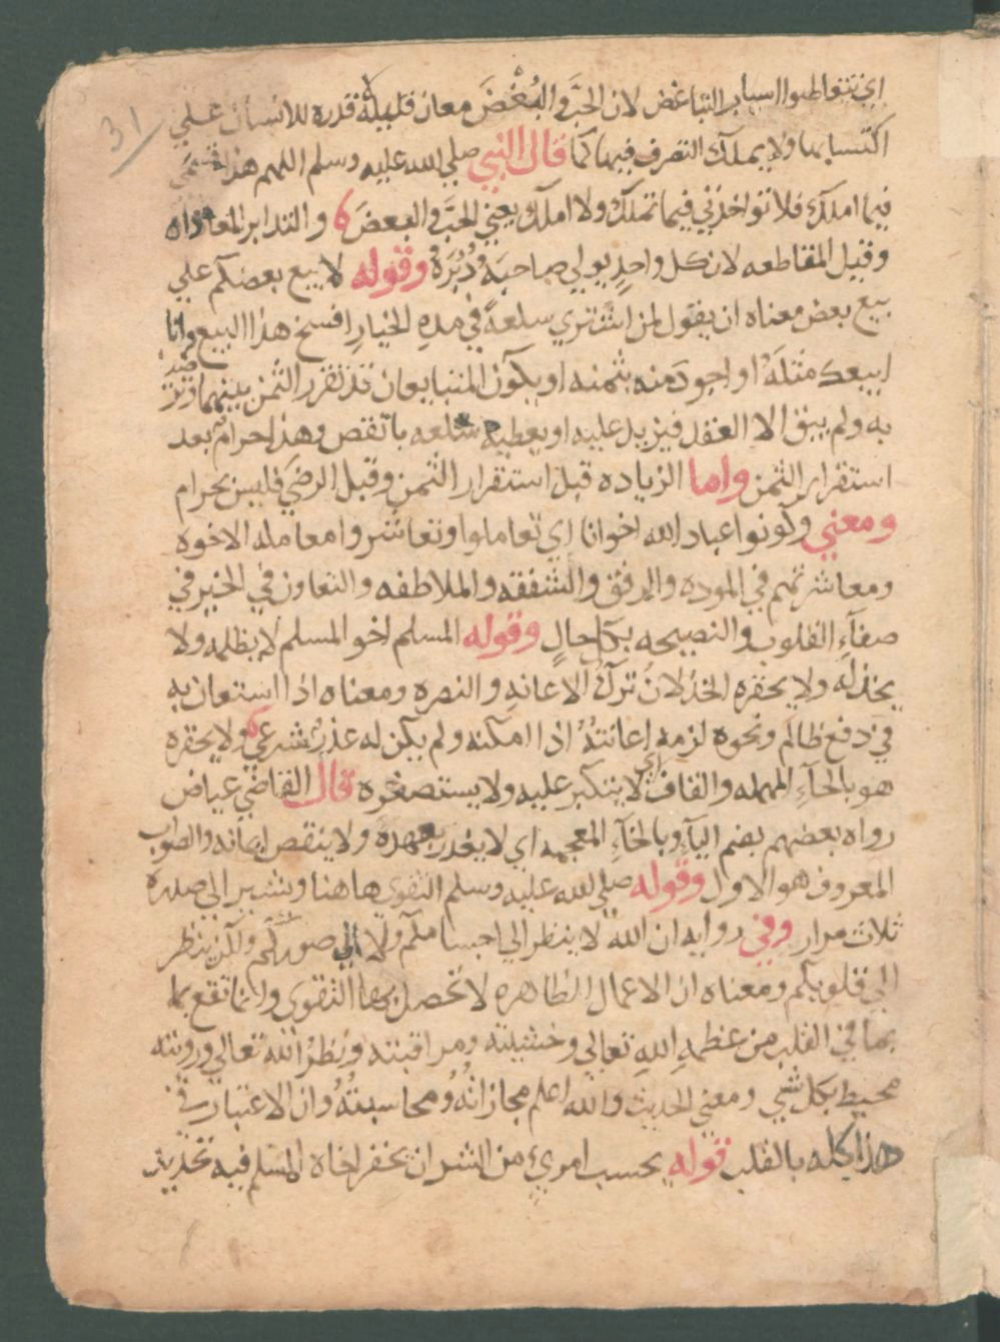 31
اي تتعاطوا اسباب التباغض لان الحبَّ والبُغْضَ معان قلبيلة قدره للانسان علي
اكتسابها ولا يملك التصرف فيها كما قال النبي صلي الله عليه وسلم اللهم هذا قسمي
فيما املك فلا تواخذني فيما تملك ولا املك يعني الحبَّ والبعضَ والتدابر المعاداه
وقيل المقاطعه لان كل واحدٍ يولي صاحبَهُ دُبُرَهُ وقوله لا يبيع بعضكم علي
بيع بعض معناه ان يقول لمن اشتري سلعةً في مدهِ الخيارِ افسخ هذا البيع وانا
ابيعك مثلَهُ او اجودَ منه بثمنه او يكون المتبايعان قد تقرر الثمن بينهما وتر
به ولم يبق الا العقد فيزيد عليه او يعطيه سلعه بانقص وهذا حرام بعد
استقرار الثمن واما الزياده قبل استقرار الثمن وقبل الرضَي فليس بحرام
ومعني وكونوا عباد الله اخوانا اي تعاملوا وتعاشروا معامله الاخوه
ومعاشرتهم في الموده والرفق والشفقه والملاطفه والتعاون في الخير في
صفآءِ القلوب والنصيحه بكل حالٍ وقوله المسلم اخو المسلم لا يظلمه ولا
يخذلُه ولا يحقره الخذلانُ تركُ الاعانهِ والنصره ومعناه اذا استعان به
في دفع ظالم ونحوه لزمه إعانتهُ اذا امكنه ولم يكن له عذرٌ شرعي ولا يحقره
هو بالحآءِ المهمله والقاف اي لا يتكبر عليه ولا يستصغره قال القاضي عياض
رواه بعضهم بضم اليآءِ وبالخآءِ المعجمه اي لا يغدر بعهده ولا ينقص امانه والصواب
المعروف هو الاول وقوله صلي الله عليه وسلم التقوي هاهنا ويشير الي صدره
ثلاث مرار وفي روايه ان الله لا ينظر الي اجسامكم ولا الي صوركم ولكن ينظر
الي قلوبكم ومعناه ان الاعمال الظاهره لا تحصل بها التقوي وانما تقع بما
بما في القلب من عظمهِ اللهِ تعالي وخشيته ومراقبته ونظرُ الله تعالي ورويته
محيط بكل شي ومعني الحديث والله اعلم مجازاتُهُ ومحاسبتُهُ وان الاعتبار في
هذا كله بالقلب قوله بحسب امري من الشر ان يحقر اخاه المسلم فيه تحذير